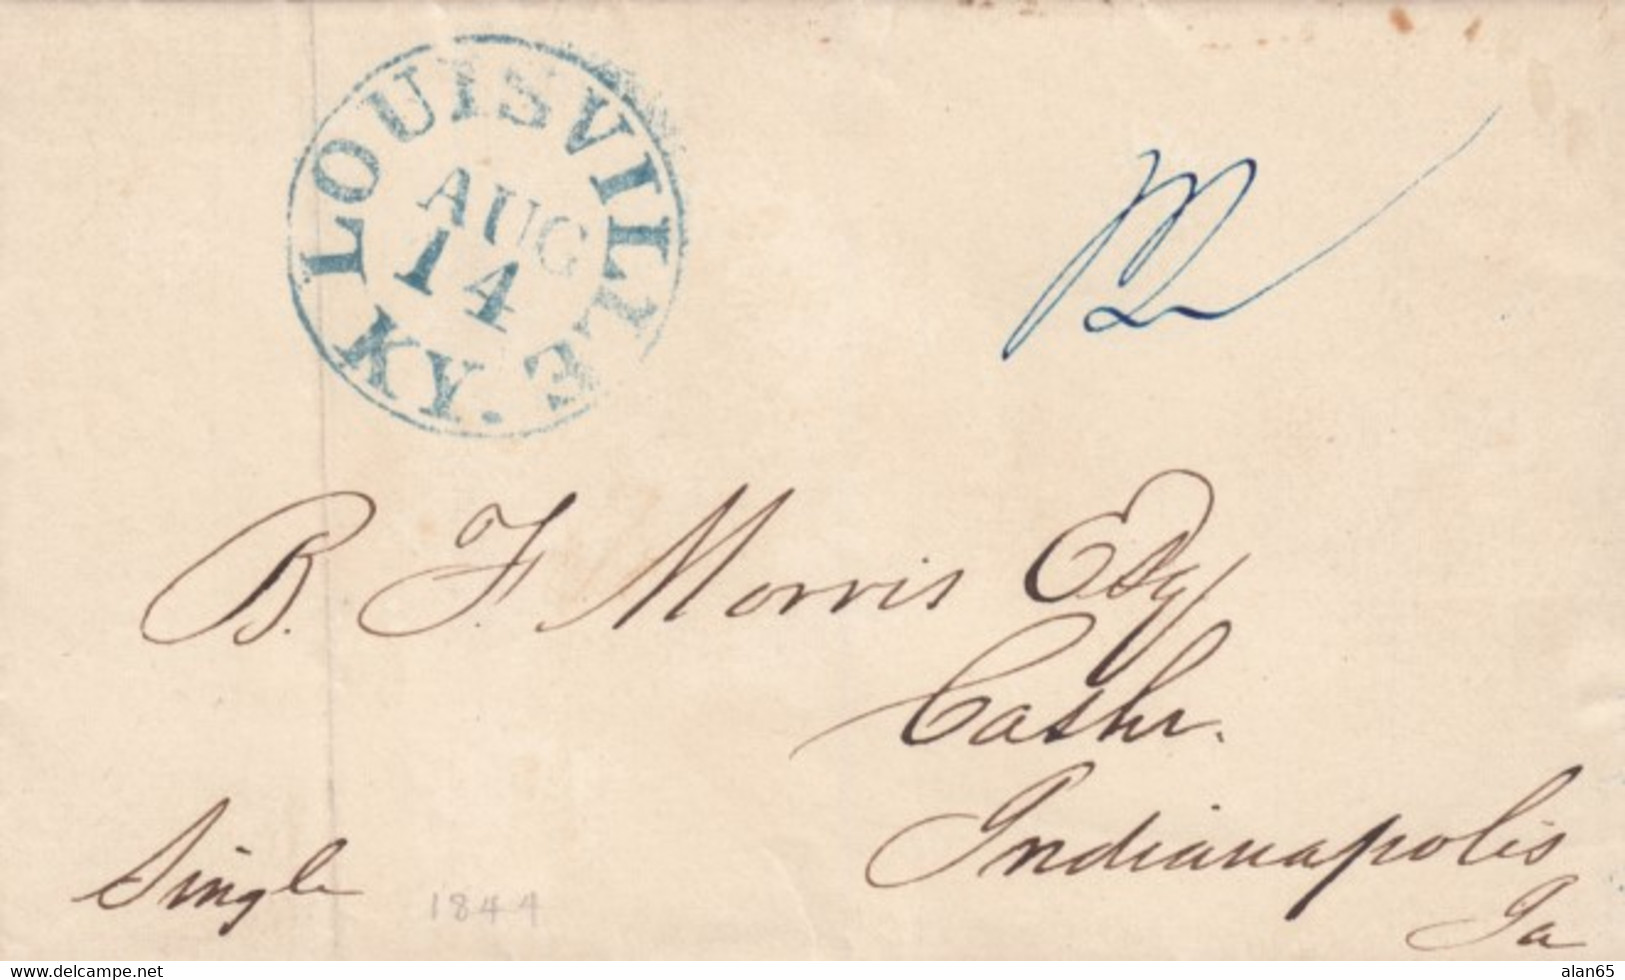 LOUISVILLE KY.
AUG
14
B. F. Morris Esq
Cashr.
Indianapolis
Ia
Single
1844
www.delcampe.net
alan65